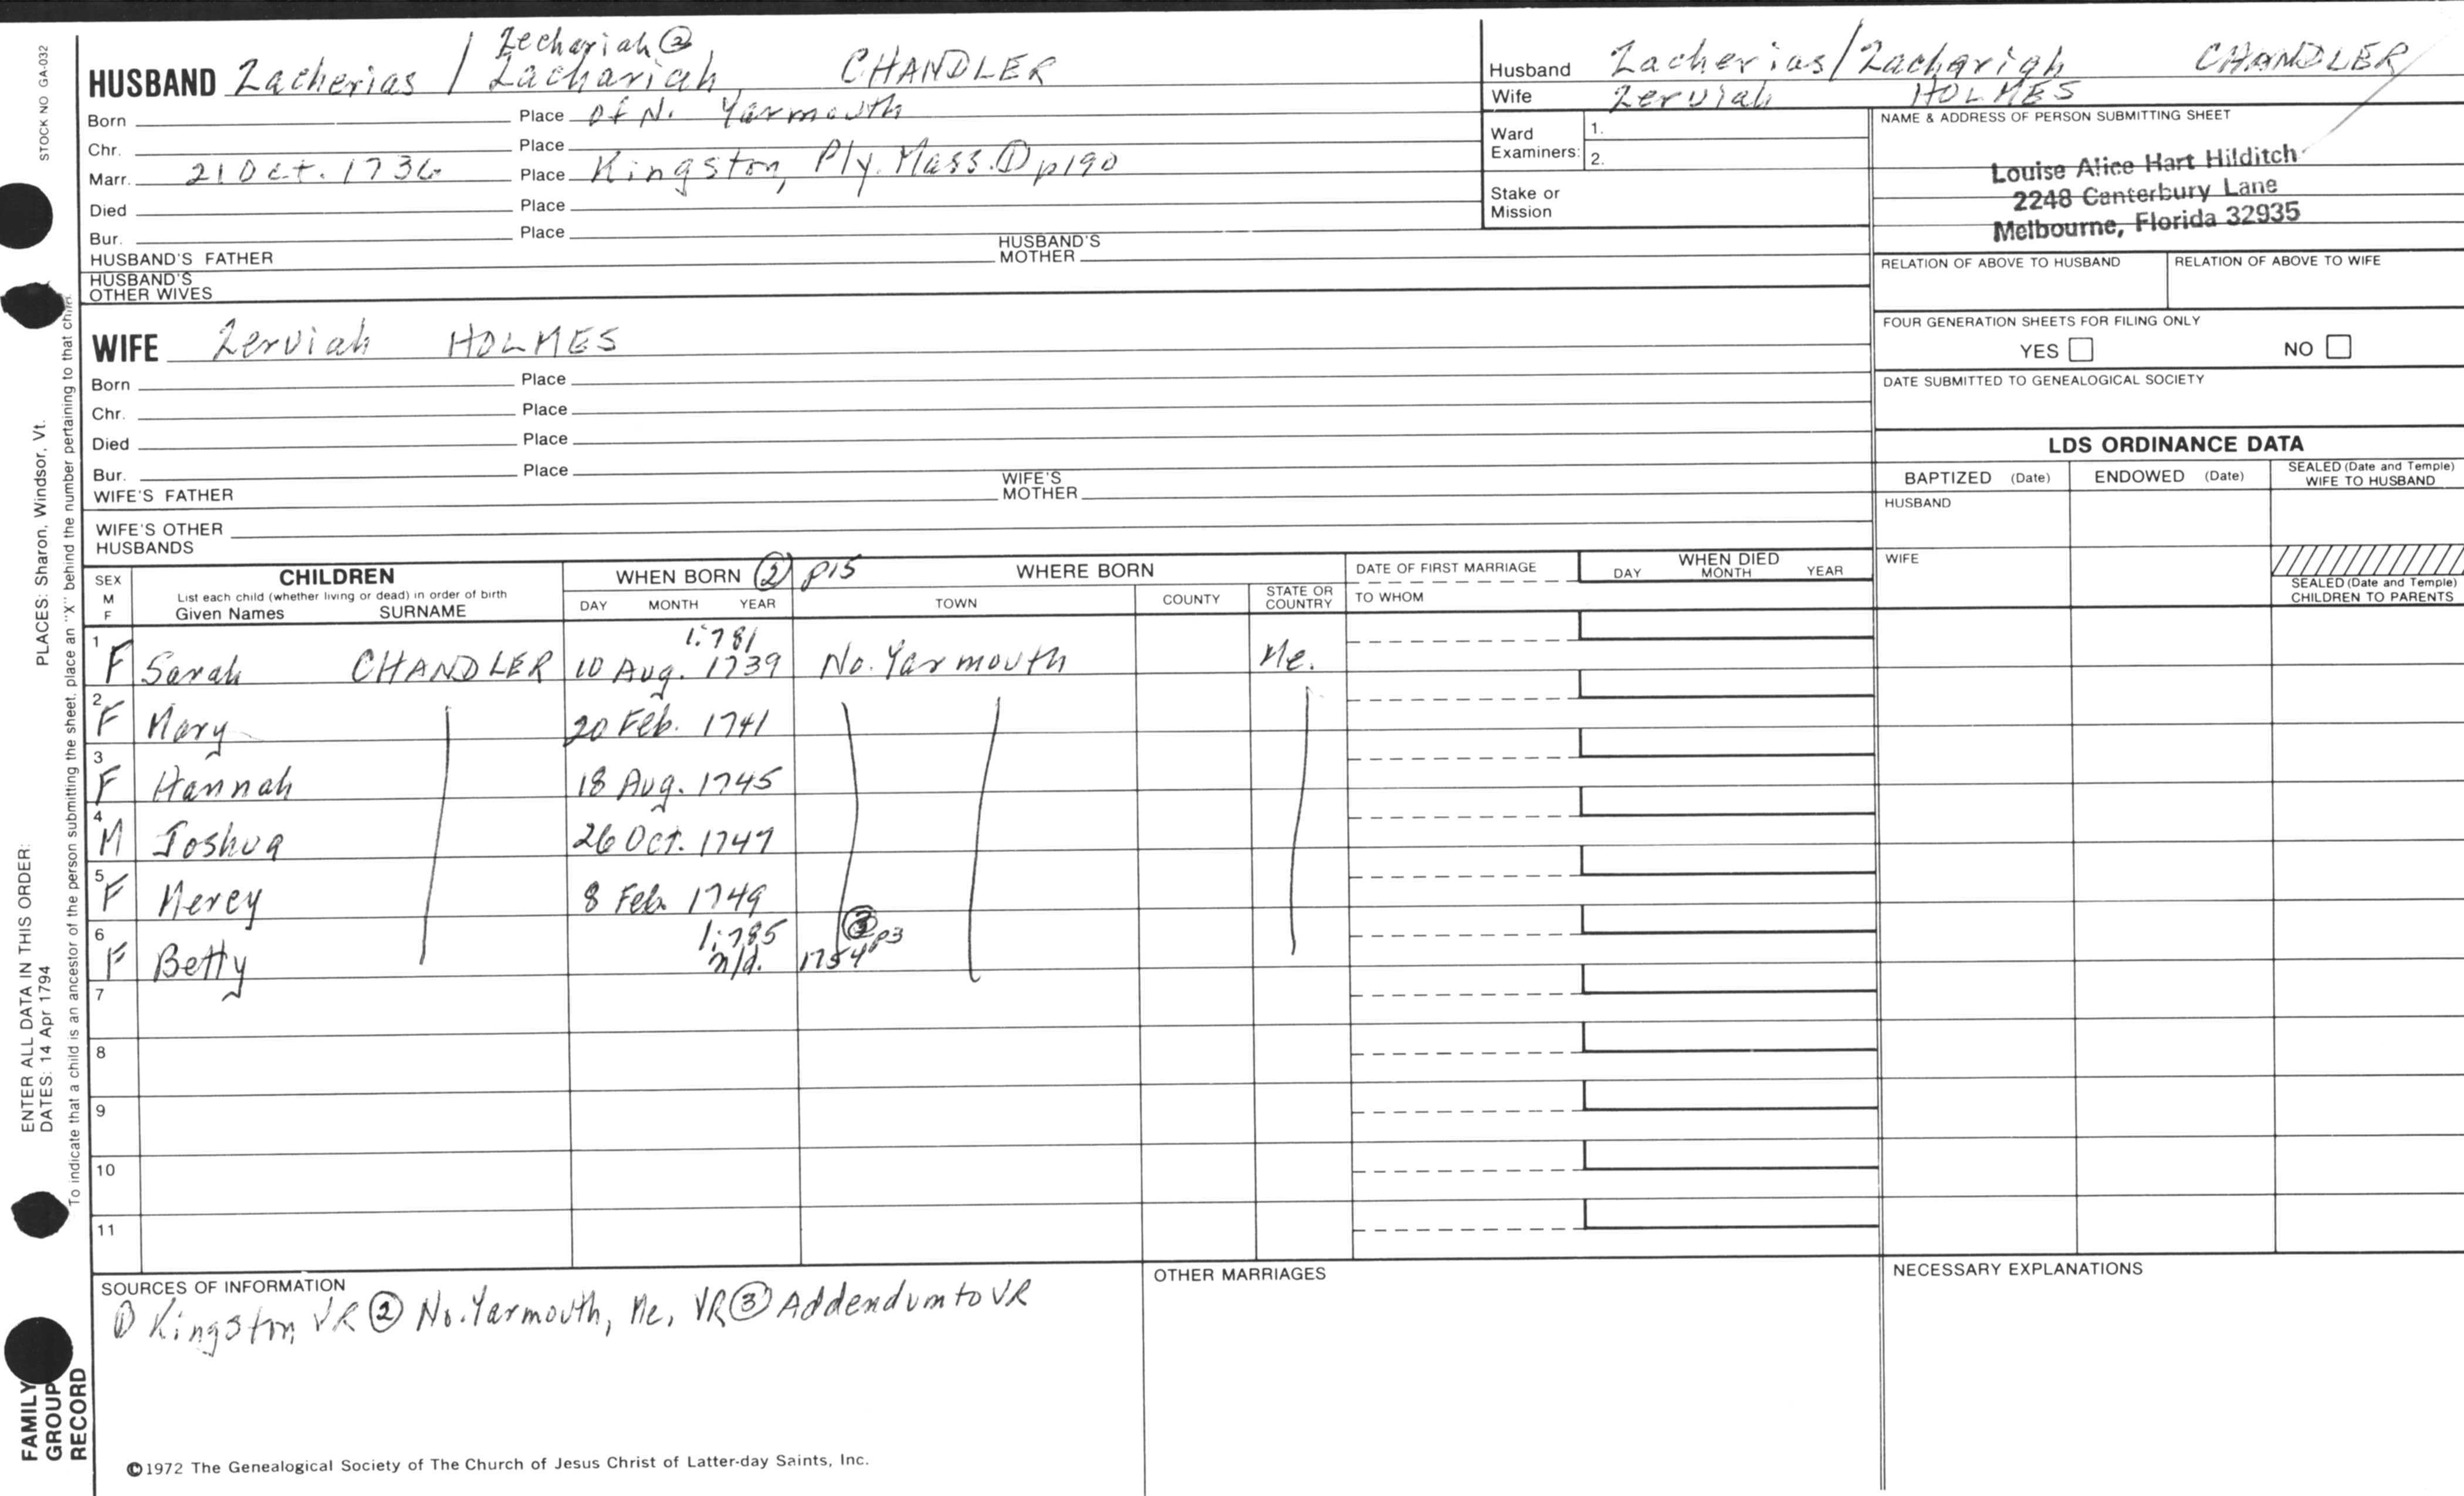 STOCK NO GA-032
PLACES: Sharon, Windsor, Vt.
ENTER ALL DATA IN THIS ORDER:
DATES: 14 Apr 1794
To indicate that a child is an ancestor of the person submitting the sheet, place an "X" behind the number pertaining to that child.
FAMILY
GROUP
RECORD
Zechariah ②
HUSBAND Zacherias / Zachariah CHANDLER
Born Place of N. Yarmouth
Chr. Place
Marr. 21 Oct. 1736 Place Kingston, Ply. Mass. ① p190
Died Place
Bur. Place
HUSBAND'S FATHER HUSBAND'S MOTHER
HUSBAND'S OTHER WIVES
WIFE Zerviah HOLMES
Born Place
Chr. Place
Died Place
Bur. Place
WIFE'S FATHER WIFE'S MOTHER
WIFE'S OTHER HUSBANDS
Husband Zacherias/Zachariah CHANDLER
Wife Zerviah HOLMES
Ward Examiners: 1.
2.
Stake or Mission
NAME & ADDRESS OF PERSON SUBMITTING SHEET
Louise Alice Hart Hilditch
2248 Canterbury Lane
Melbourne, Florida 32935
RELATION OF ABOVE TO HUSBAND RELATION OF ABOVE TO WIFE
FOUR GENERATION SHEETS FOR FILING ONLY
YES NO
DATE SUBMITTED TO GENEALOGICAL SOCIETY
LDS ORDINANCE DATA
BAPTIZED (Date) ENDOWED (Date) SEALED (Date and Temple) WIFE TO HUSBAND
HUSBAND
WIFE
SEALED (Date and Temple) CHILDREN TO PARENTS
SEX M F CHILDREN WHEN BORN ② p15 WHERE BORN DATE OF FIRST MARRIAGE WHEN DIED
List each child (whether living or dead) in order of birth
Given Names SURNAME DAY MONTH YEAR TOWN COUNTY STATE OR COUNTRY TO WHOM DAY MONTH YEAR
1:781
1 F Sarah CHANDLER 10 Aug. 1739 No. Yarmouth Me.
2 F Mary 20 Feb. 1741
3 F Hannah 18 Aug. 1745
4 M Joshua 26 Oct. 1747
5 F Mercy 8 Feb. 1749
1:785 ③ p3
6 F Betty n/d. 1754
7
8
9
10
11
SOURCES OF INFORMATION
① Kingston VR ② No. Yarmouth, Me, VR ③ Addendum to VR
OTHER MARRIAGES
NECESSARY EXPLANATIONS
©1972 The Genealogical Society of The Church of Jesus Christ of Latter-day Saints, Inc.